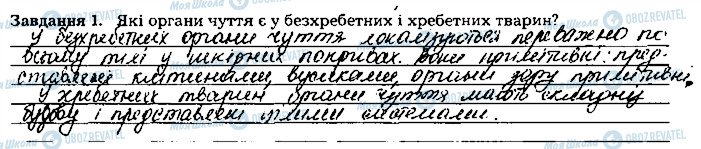 Завдання 1. Які органи чуття є у безхребетних і хребетних тварин?
У безхребетних органи чуття локалізуються переважно по
всьому тілі у шкірних покривах. Вони примітивні: пред-
ставлені клітинами, вусиками, органи зору примітивні.
У хребетних тварин органи чуття мають складну
будову і представлені цілими системами.